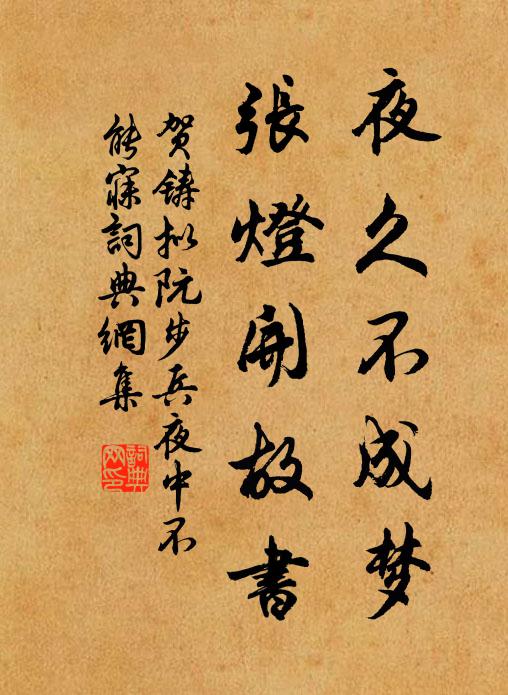 夜久不成梦
張燈開故書
贺鑄拟阮步兵夜中不
能寐詞典網集
詞典
网印